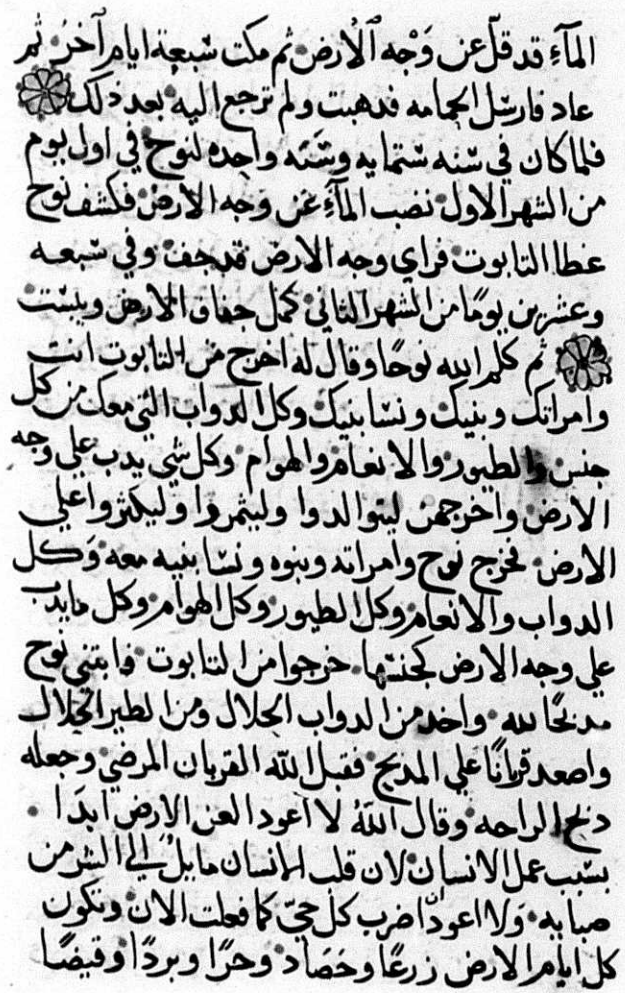 المآءِ قد قلّ عن وَجْه الٱلارض ثم مكت سَبعة ايام آخرُ ثم
عاد فارسَل الحمامه فدهبت ولم ترجع اليه بعد ذلك
فلما كان في سَنه سَتمايه وسَنَه واحده لنوح في اول يوم
من الشهر الاول نضب المآءِ عَن وجه الارض فكشف نوح
غطا التابوت فراي وجه الارض قد جف وفي سَبعه
وعشرين يومًا من الشهر الثاني كمل جفاف الارض ويبسَت
ثم كلم الله نوحًا وقال له اخرج من التابوت انت
وامراتك وبنيك ونسَا بنيك وكل الدواب التي معك من كل
جنس والطيور والانعام والهوام وكل شي يدب علي وجه
الارض واخرجهن ليتوالدوا وليثمروا وليكثروا علي
الارض فخرج نوح وامراته وبنوه ونسَا بنيه معه وَكل
الدواب والانعام وكل الطيور وكل الهوام وكل مايدب
علي وجه الارض كجنسَها خرجوا من التابوت وابتني نوح
مدبحًا لله واخد من الدواب الحلال ومن الطير الحلال
واصعد قربانًا علي المدبح فقبل اللّه القربان المرضي وجعله
دبح الراحه وقال اللّهُ لا اعود العن الارض ابدَا
بسَبب عمل الانسان لان قلب الانسان مايلْ الي الشر من
صبايه وَلا اعود اضرب كل حيّ كما فعلت الان وتكون
كل ايام الارض زرعًا وحَصَاد وحرًا وبردًا وقيضًا